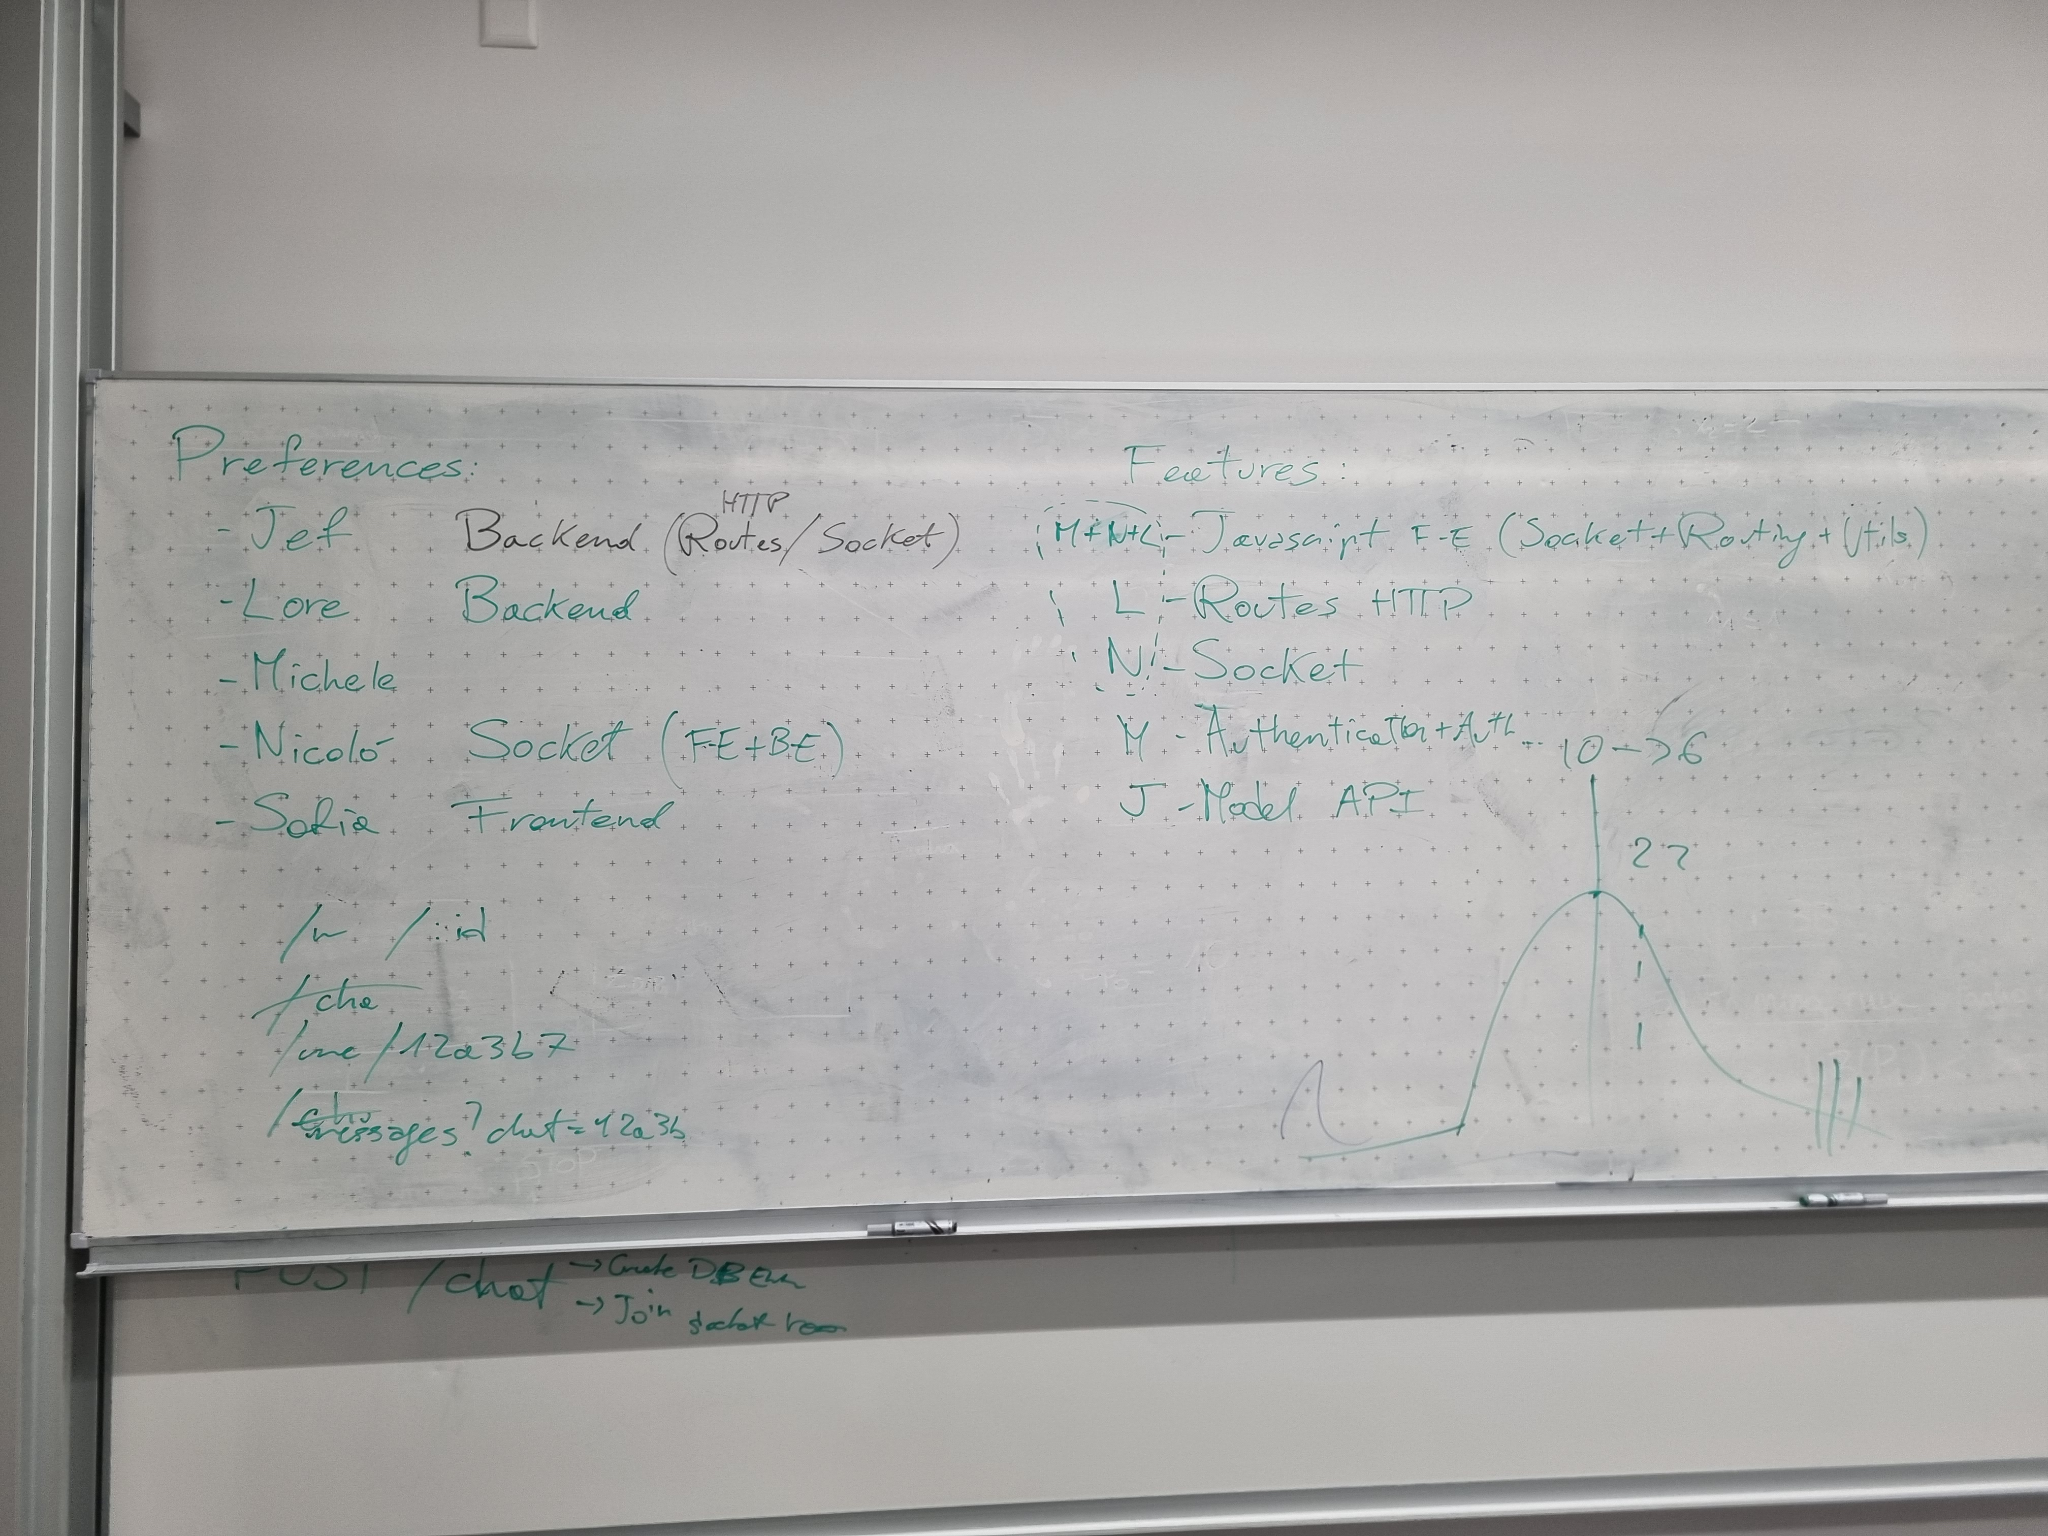 Preferences:
- Jef Backend (HTTP Routes/Socket)
- Lore Backend
- Michele
- Nicoló Socket (F-E+B-E)
- Sofia Frontend
/ /:id
/cha
/12a3b7
/messages?chat=12a3b
Features:
M+N+L - Javascript F-E (Socket+Routing+Utils)
L - Routes HTTP
N - Socket
M - Authentication+Auth...
J - Model API
10->6
22
POST /chat -> Create DB
-> Join socket room